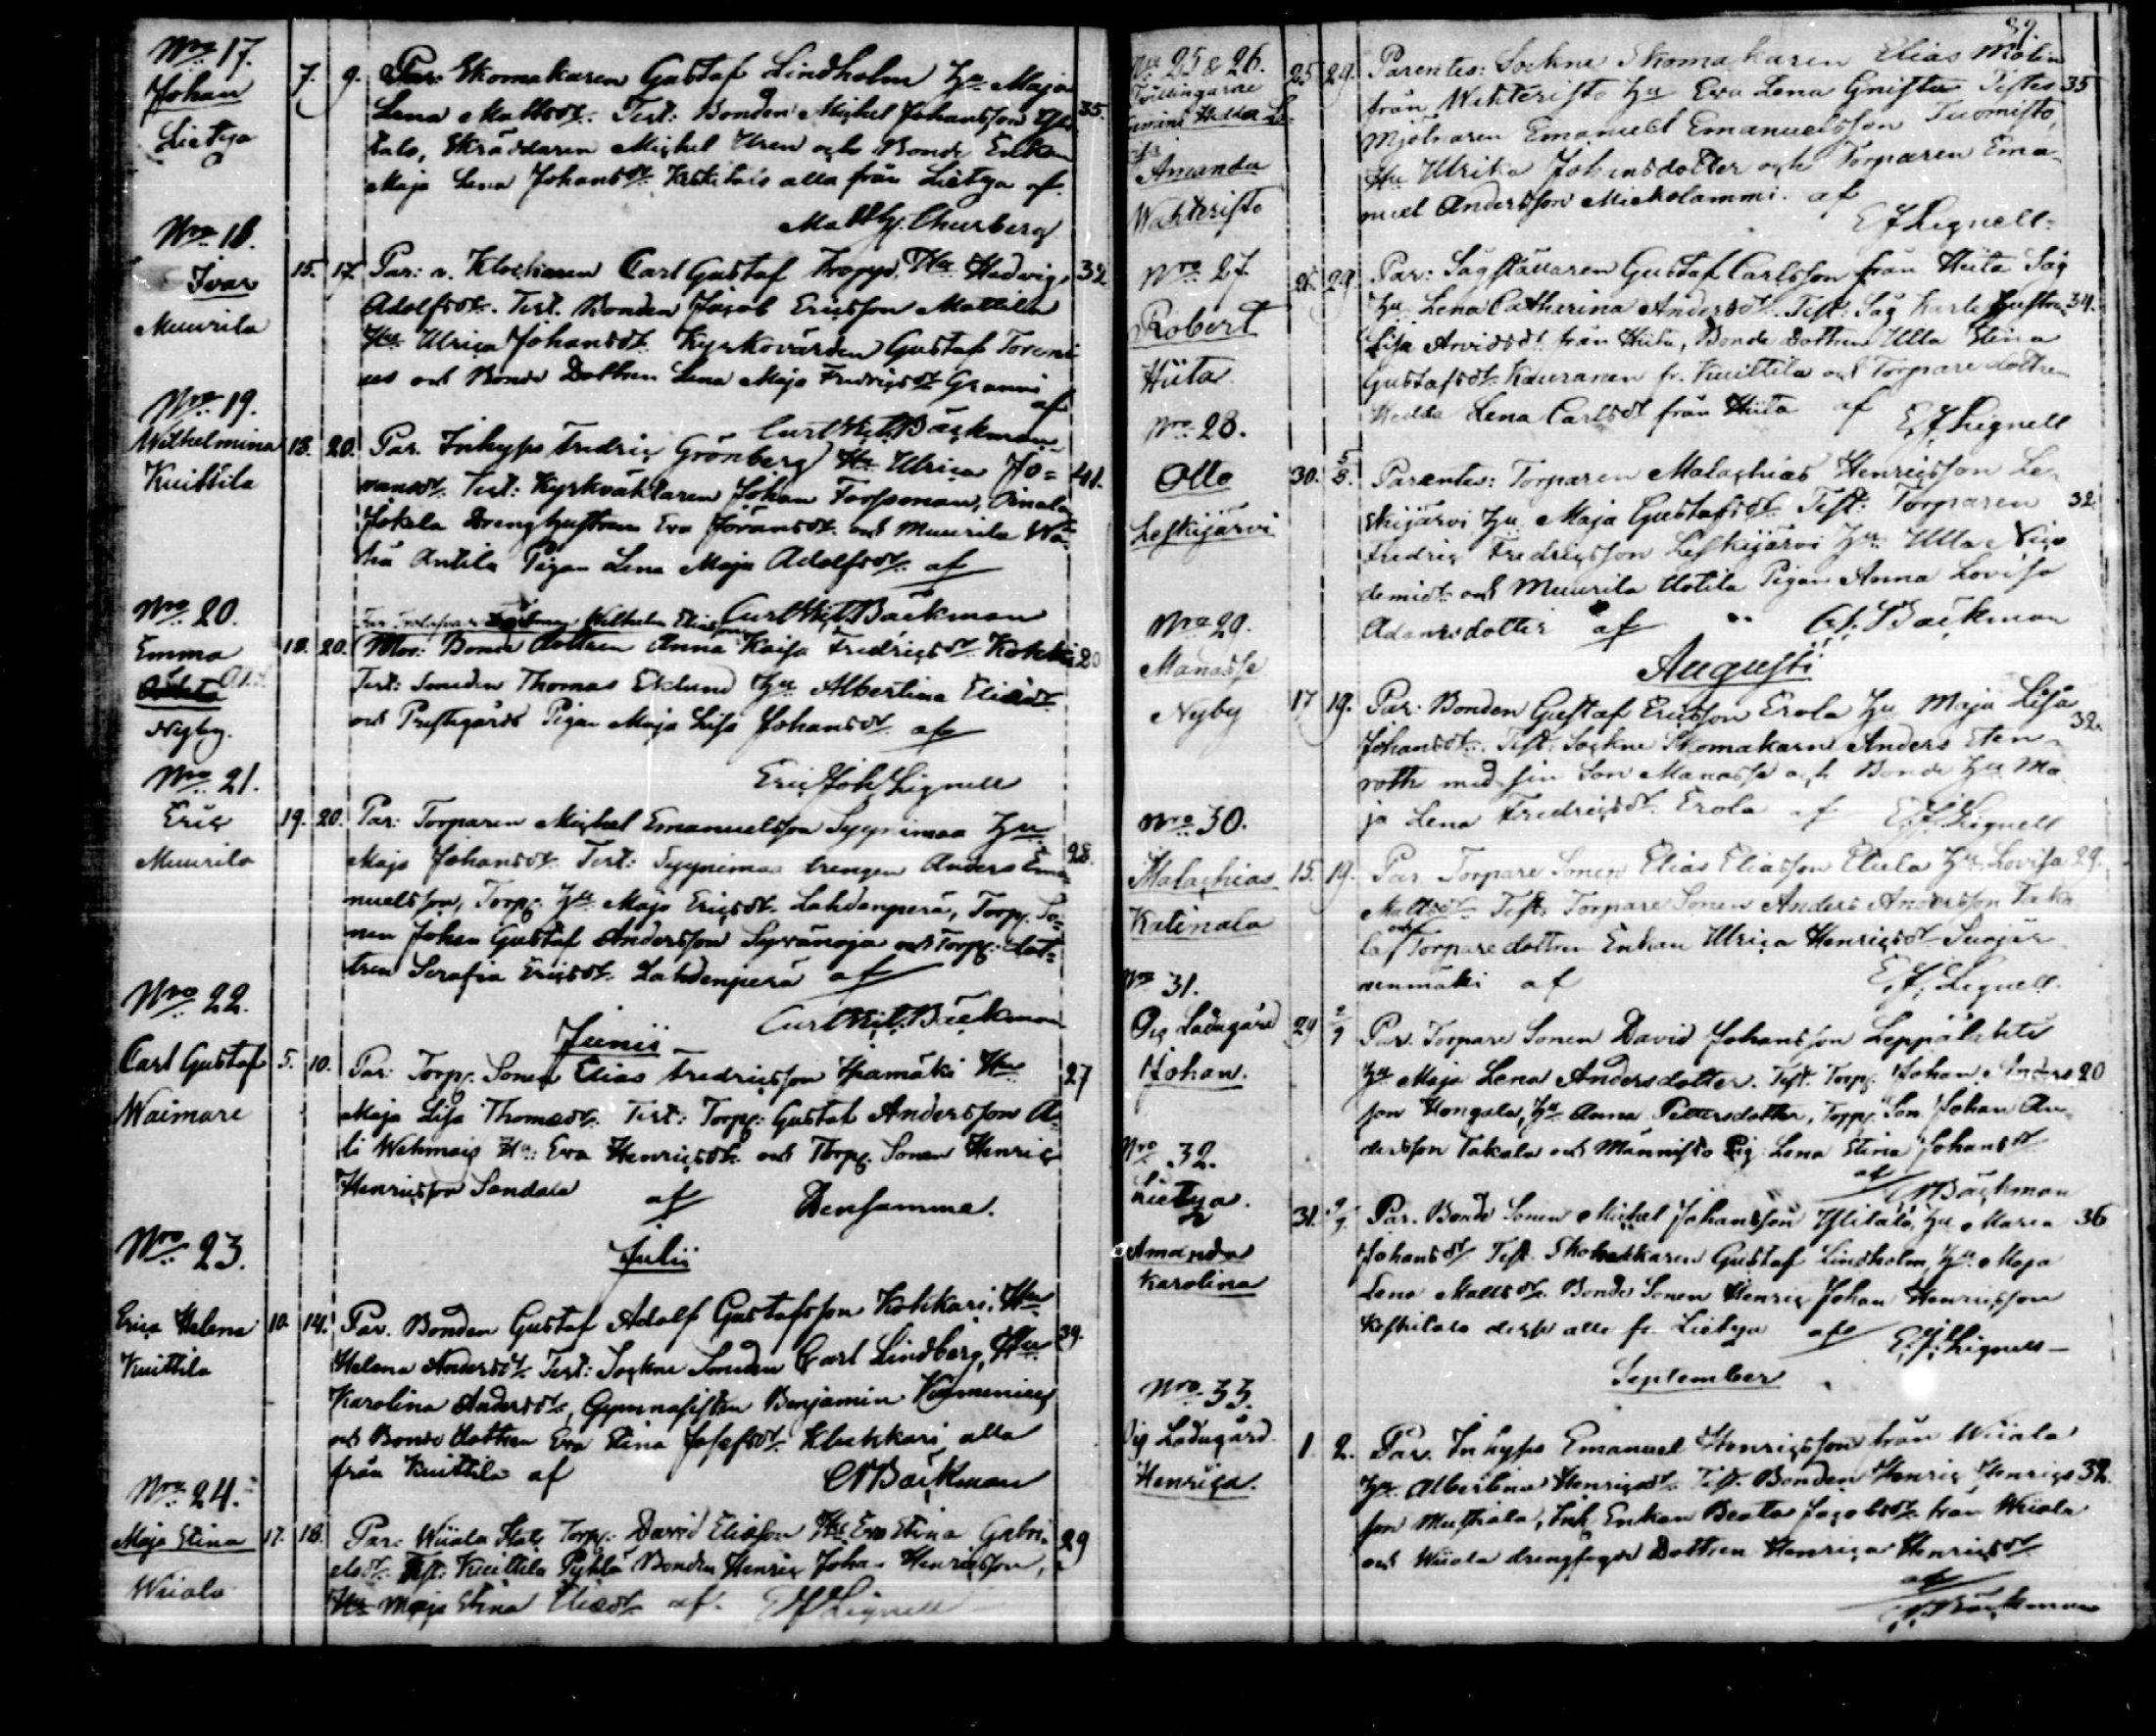 Nro 17.
Johan
Lietsa
7. 9. Par: Skomakaren Gustaf Lindholm Hu Maja
Lena Mattsdr. Test: Bonden Michel Johansson Yli 35.
talo, Skräddaren Michel Uren och Bonde Enkan
Maja Lena Johansdr. Keskitalo alla från Lietsa af
Matth. Churberg
Nro 18.
Ivar
Muurila
15. 17. Par: v. Klockaren Carl Gustaf Hu Hedvig 32
Adolfsdr. Test. Bonden Jacob Ericsson Mattila
Hu Ulrica Johansdr. Kyrkovärden Gustaf
och Bonde Dottren Lena Maja Fredricsdr Granni
af
Curt Wil. Bäckman
Nro 19.
Wilhelmina
Kuittila
18. 20. Par. Inhyses Fredric Grönberg Hu Ulrica Jö= 41.
ransdr. Test: Kyrkväktaren Johan
Jokela Dreng hustrun Eva Göransdr. och Muurila
Antila Pigan Lena Maja Adolfsdr. af
Curt Wil. Bäckman
Nro 20.
Emma
Nyby.
Wilhelm Eliasson
18. 20. Mod: Bonde dottren Anna Kaisa Fredricsdr. 20
Test: Smeden Thomas Eklund Hu Albertina Eliædr.
och Prestgårds Pigan Maja Lisa Johansdr. af
Eric Joh. Lignell
Nro 21.
Eric
Muurila
19. 20. Par: Torparen Michel Emanuelsson Syynimaa Hu
Maja Johansdr. Test: Syynimaa drengen Anders Ema= 28.
nuelsson, Torp. Hu Maja Ericsdr. Lahdenperä, Torp. So=
nen Johan Gustaf Andersson och Torp: dot=
tren Serafia Ericsdr. Lahdenperä af
Curt Wil. Bäckman
Junii
Nro 22.
Carl Gustaf
Waimare
5. 10. Par: Torp. Sonen Elias Fredricsson Hu 27
Maja Lisa Thomædr. Test: Torp: Gustaf Andersson A=
li Wehmais Hu: Eva Henricsdr. och Torp. Sonen Henric
Henricsson Sandala af Densamme.
Julii
Nro 23.
Erica Helena
Kuittila
10. 14. Par. Bonden Gustaf Adolf Gustafsson Kohkari, Hu
Helena Andersdr. Test: Sockne Smeden Carl Lindberg, Hu 39.
Karolina Andersdr, Gymnasisten Benjamin
och Bonde dottren Eva Stina Josefsdr. alla
från Kuittila af CW Bäckman
Nro 24.
Maja Stina
Wiiala
17. 18. Par: Wiiala Torp: David Eliasson Hu Eva Stina Gabri= 29
elsdr. Test: Kuittila Bonden Henric Johan Henricsson,
Hu Maja Stina Eliædr. af. EJ Lignell
89.
Nro 25 & 26.
Tvillingarne
Amanda
Wahteristo
25 29. Parentes: Sockne Skomakaren Elias Molin
från Wahteristo Hu Eva Lena Testes 35
Mjölnaren Emanuel Emanuelsson Tuomisto,
Hu Ulrika Johansdotter och Torparen Ema=
nuel Andersson Miekolammi. af
EJ Lignell.
Nro 27.
Robert
Hiita
26. 29. Par: Sågställaren Gustaf Carlsson från Hiita Såg
Hu Lena Catharina Andersdr. Test: Såg Karls hustru 34.
Lisa Arvidsdr. från Hiita, Bonde Dottren Ulla Stina
Gustafsdr. Kauranen fr. Kuittila och Torpare dottren
Hedda Lena Carlsdr från Hiita af EJ Lignell
Nro 28.
Otto
Leskijärvi
30. 5/8. Parentes: Torparen Malachias Henricsson Le=
skijärvi Hu Maja Gustafsdr. Test: Torparen 32
Fredric Fredricsson Leskijärvi Hu Ulla Nico
demidr. och Muurila Uotila Pigan Anna Lovisa
Adamsdotter af CW Bäckman
Augusti
Nro 29.
Manasse
Nyby
17 19. Par: Bonden Gustaf Ericsson Erola Hu Maja Lisa
Johansdr. Test: Sockne Skomakarn Anders Sten= 32.
roth med sin Son Manasse och Bonde Hu Ma
ja Lena Fredricsdr. Erola af EJ Lignell
Nro 30.
Malachias
Katinala
15. 19. Par. Torpare Sonen Elias Eliasson Hu Lovisa 29.
Mattsdr Test. Torpare Sonen Anders Andersson Taka
la och Torpare dottren Enkan Ulrica Henricsdr
af EJ Lignell.
Nro 31.
Ladugård
Johan.
29 2/9 Par. Torpare Sonen David Johansson Leppälahti
Hu Maja Lena Andersdotter. Test. Torp. Johan Anders 20
son Hongala, Hu Anna Pettersdotter, Torp. Son Johan An=
dersson Takala och Männisto Pig. Lena Stina Johansdr
af CW Bäckman
Nro 32.
Lietsa.
Amanda
Karolina
31. 9/9. Par. Bonde Sonen Michel Johansson Ylitalo, Hu Maria 36
Johansdr Test. Skomakaren Gustaf Lindholm, Hu Maja
Lena Mattsdr. Bonde Sonen Henric Johan Henricsson
Keskitalo desse alla fr. Lietsa af EJ Lignell
September
Nro 33.
Ladugård
Henrica.
1. 2. Par. Inhyses Emanuel Henricsson från Wiiala
Hu Albertina Henricsdr. Test. Bonden Henric Henrics 32.
son, Inh. Enkan Beata Jacobsdr. från Wiiala
och Wiiala drengfogde Dottren Henrica Henricsdr
af
CW Bäckman